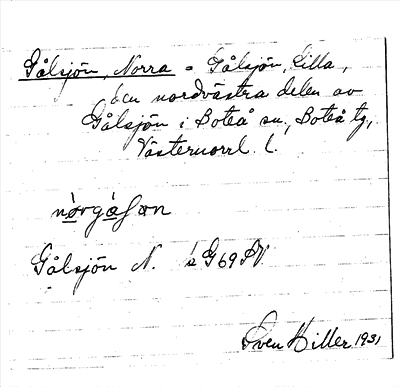 Gålsjön, Norra = Gålsjön, Lilla,
den nordvästra delen av
Gålsjön i Boteå sn, Boteå tg,
Västernorrl. l.
Gålsjön N. G69 SV
Sven Hiller 1931